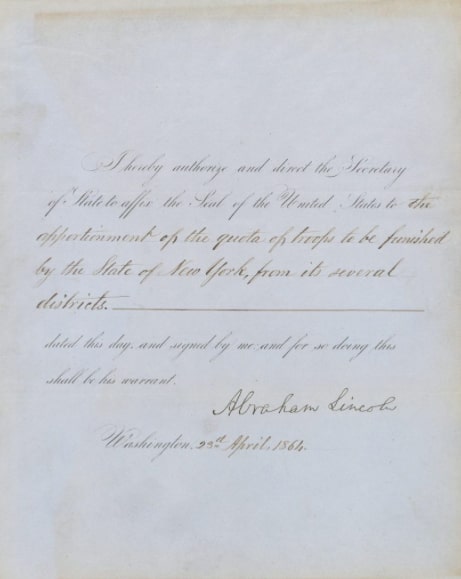 I hereby authorize and direct the Secretary
of State to affix the Seal of the United States to the
apportionment of the quota of troops to be furnished
by the State of New York, from its several
districts.
dated this day, and signed by me, and for so doing this
shall be his warrant.
Abraham Lincoln
Washington, 23d April, 1864.